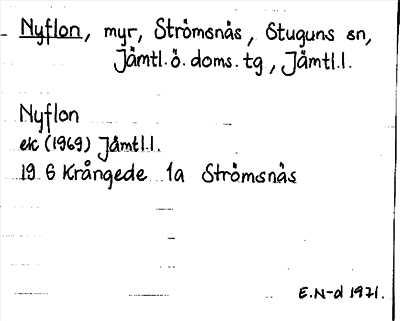 Nyflon, myr, Strömsnäs, Stuguns sn,
Jämtl. ö. doms. tg, Jämtl.l.
Nyflon
ek (1969) Jämtl.l.
19 6 Krångede 1a Strömsnäs
E.N-d 1971.